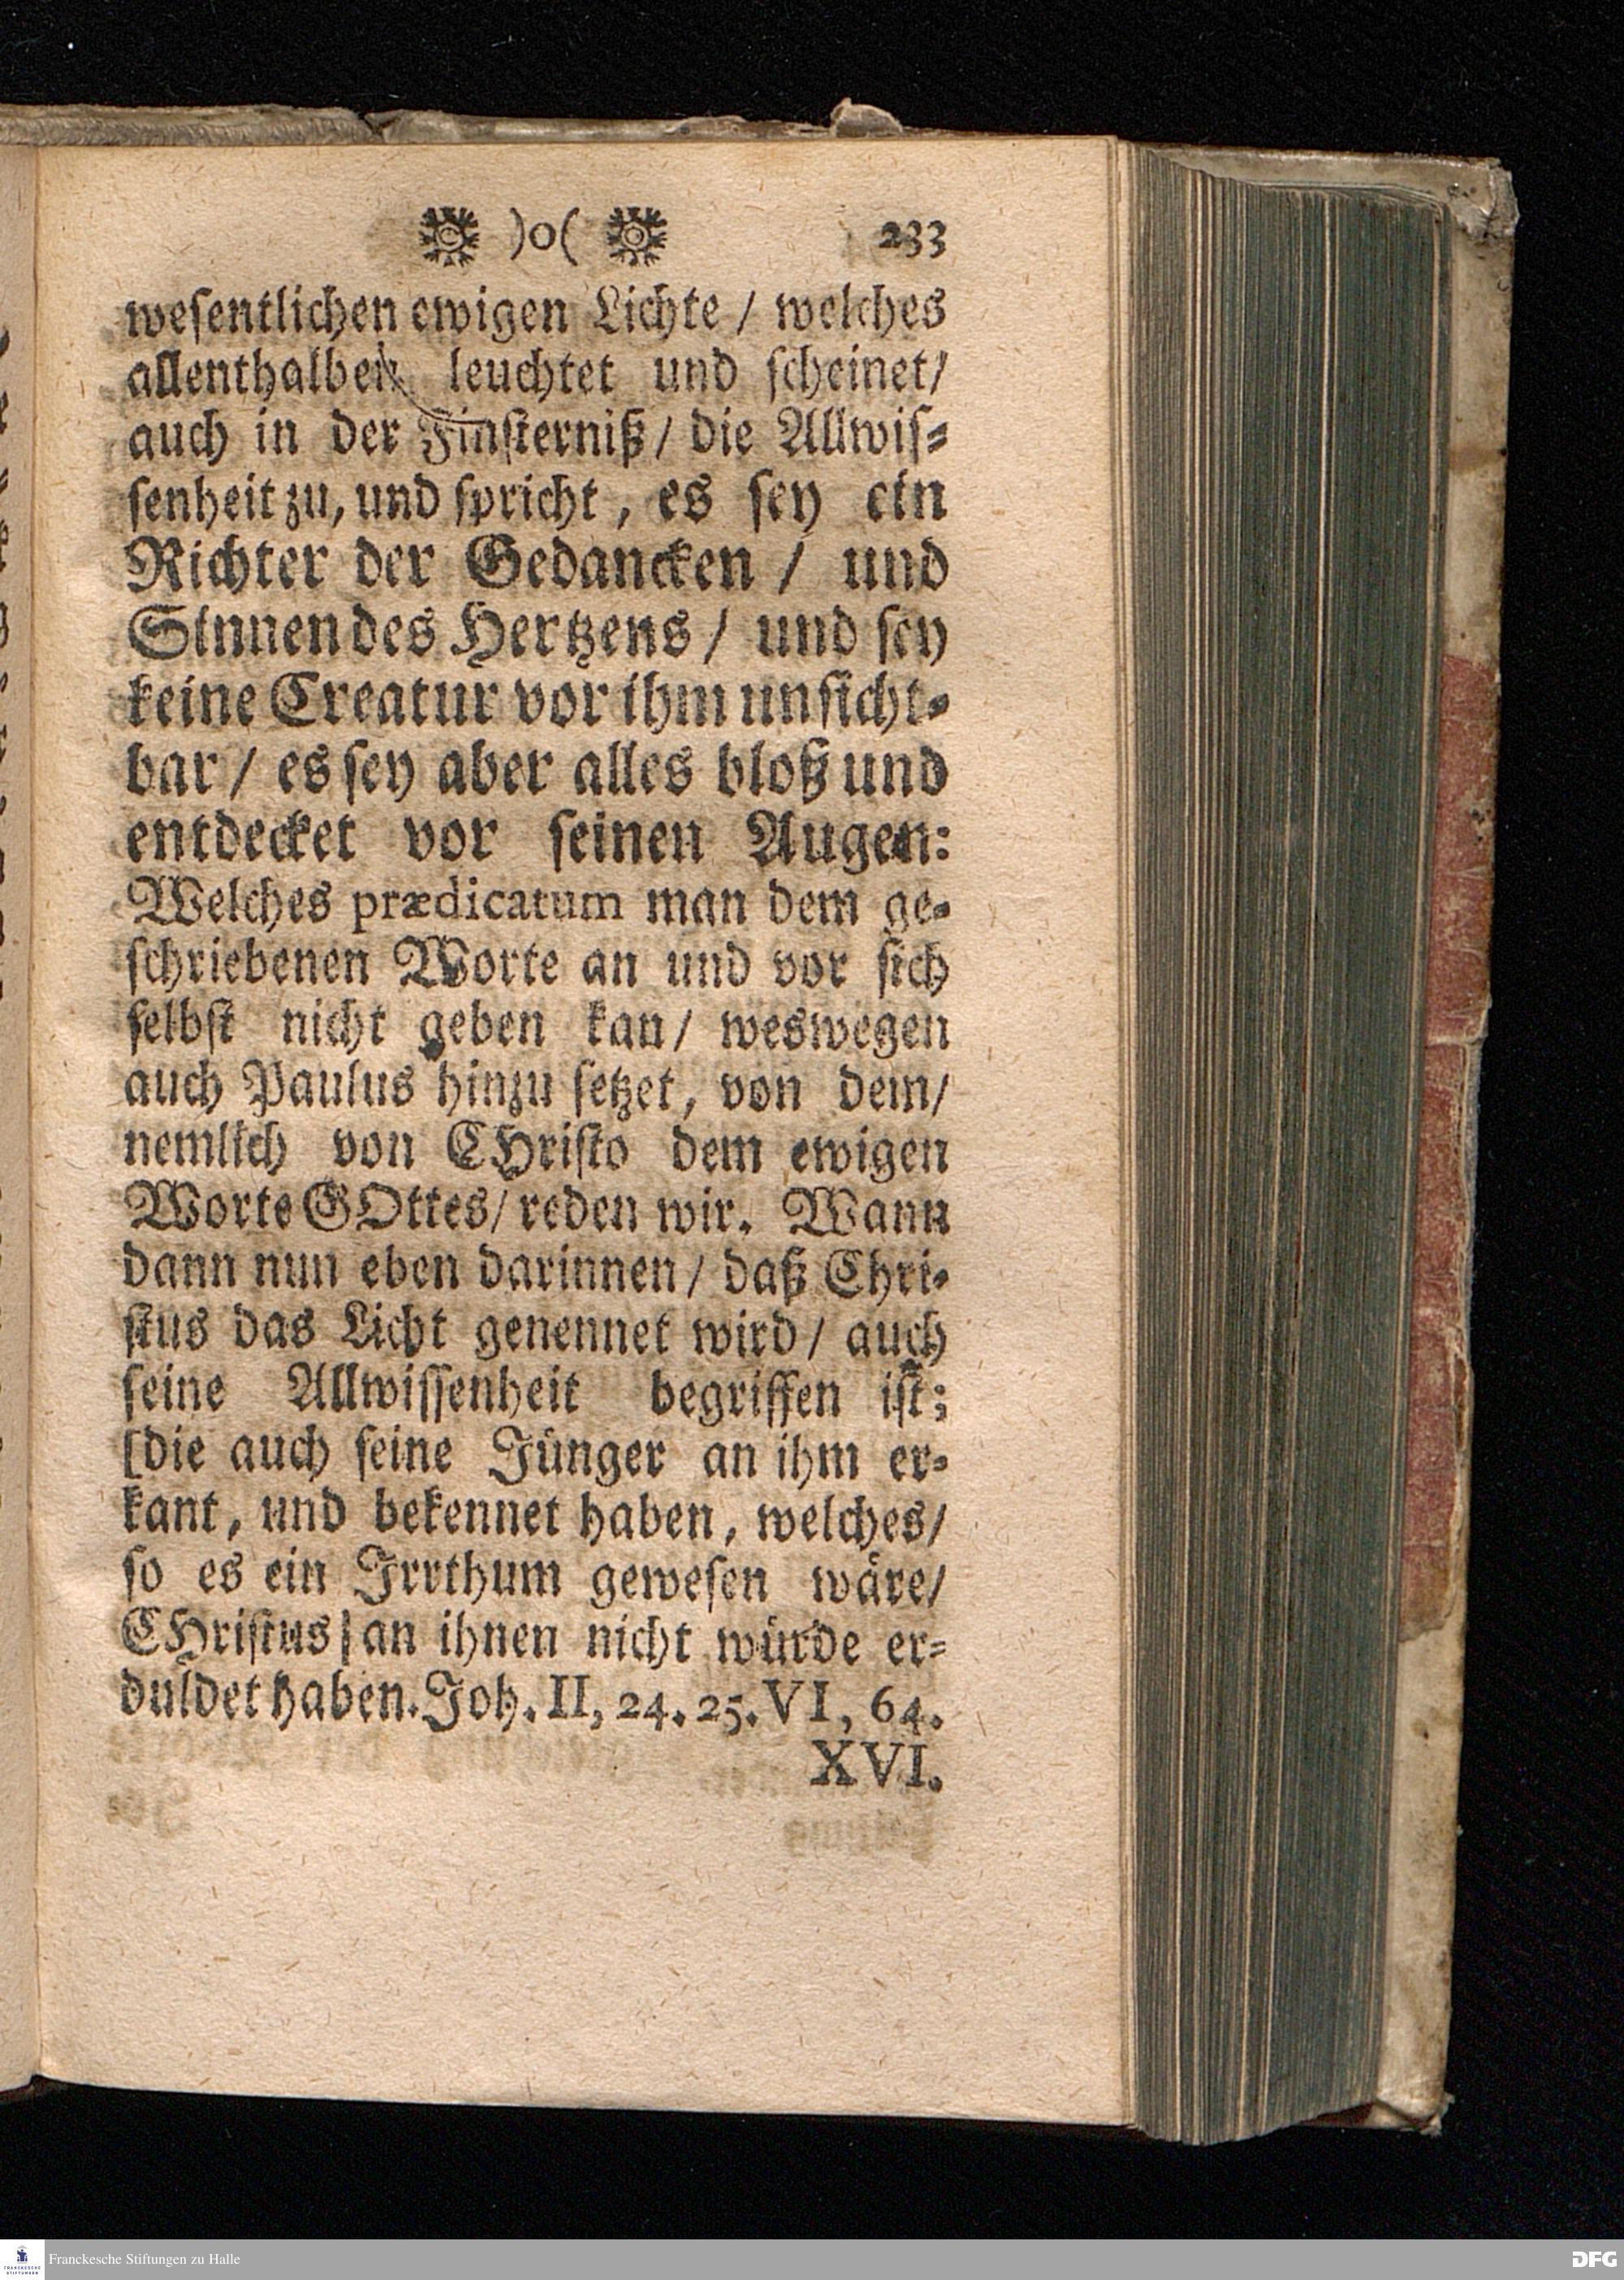 )o( 233
wesentlichen ewigen Lichte / welches
allenthalben leuchtet und scheinet/
auch in der Finsterniß/ die Allwis-
senheit zu, und spricht, es sey ein
Richter der Gedancken / und
Sinnen des Hertzens / und sey
keine Creatur vor ihm unsicht-
bar / es sey aber alles bloß und
entdecket vor seinen Augen:
Welches prædicatum man dem ge-
schriebenen Worte an und vor sich
selbst nicht geben kan/ weswegen
auch Paulus hinzu setzet, von dem/
nemlich von CHristo dem ewigen
Worte GOttes/ reden wir. Wann
dann nun eben darinnen/ daß Chri-
stus das Licht genennet wird/ auch
seine Allwissenheit begriffen ist;
[die auch seine Jünger an ihm er-
kant, und bekennet haben, welches/
so es ein Irrthum gewesen wäre/
CHristus] an ihnen nicht würde er-
duldet haben. Joh. II, 24. 25. VI, 64.
XVI.
Franckesche Stiftungen zu Halle
DFG